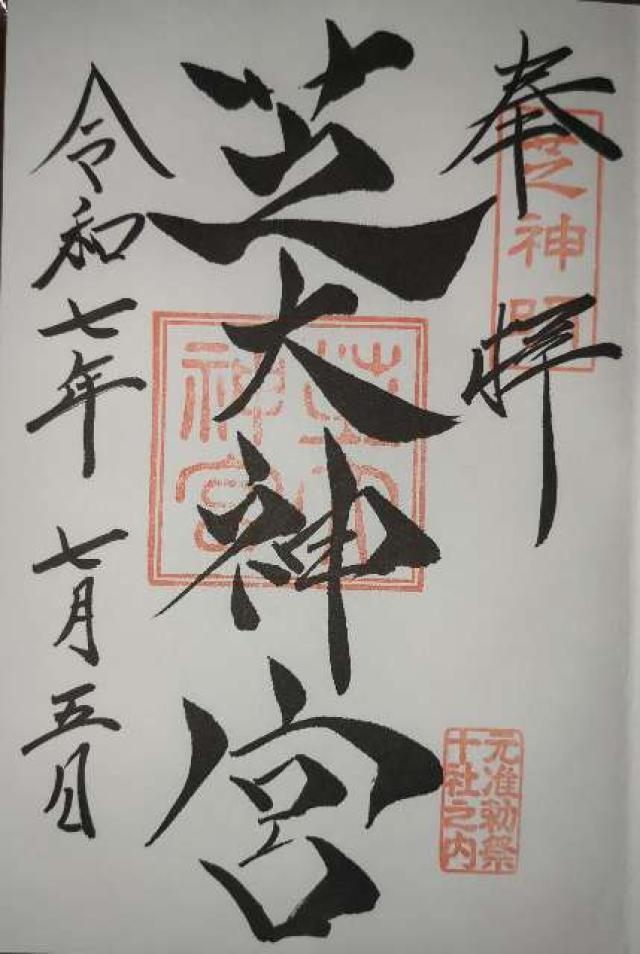 奉拝
芝神明
芝大神宮
芝大神宮
元准勅祭
十社之内
令和七年 七月五日